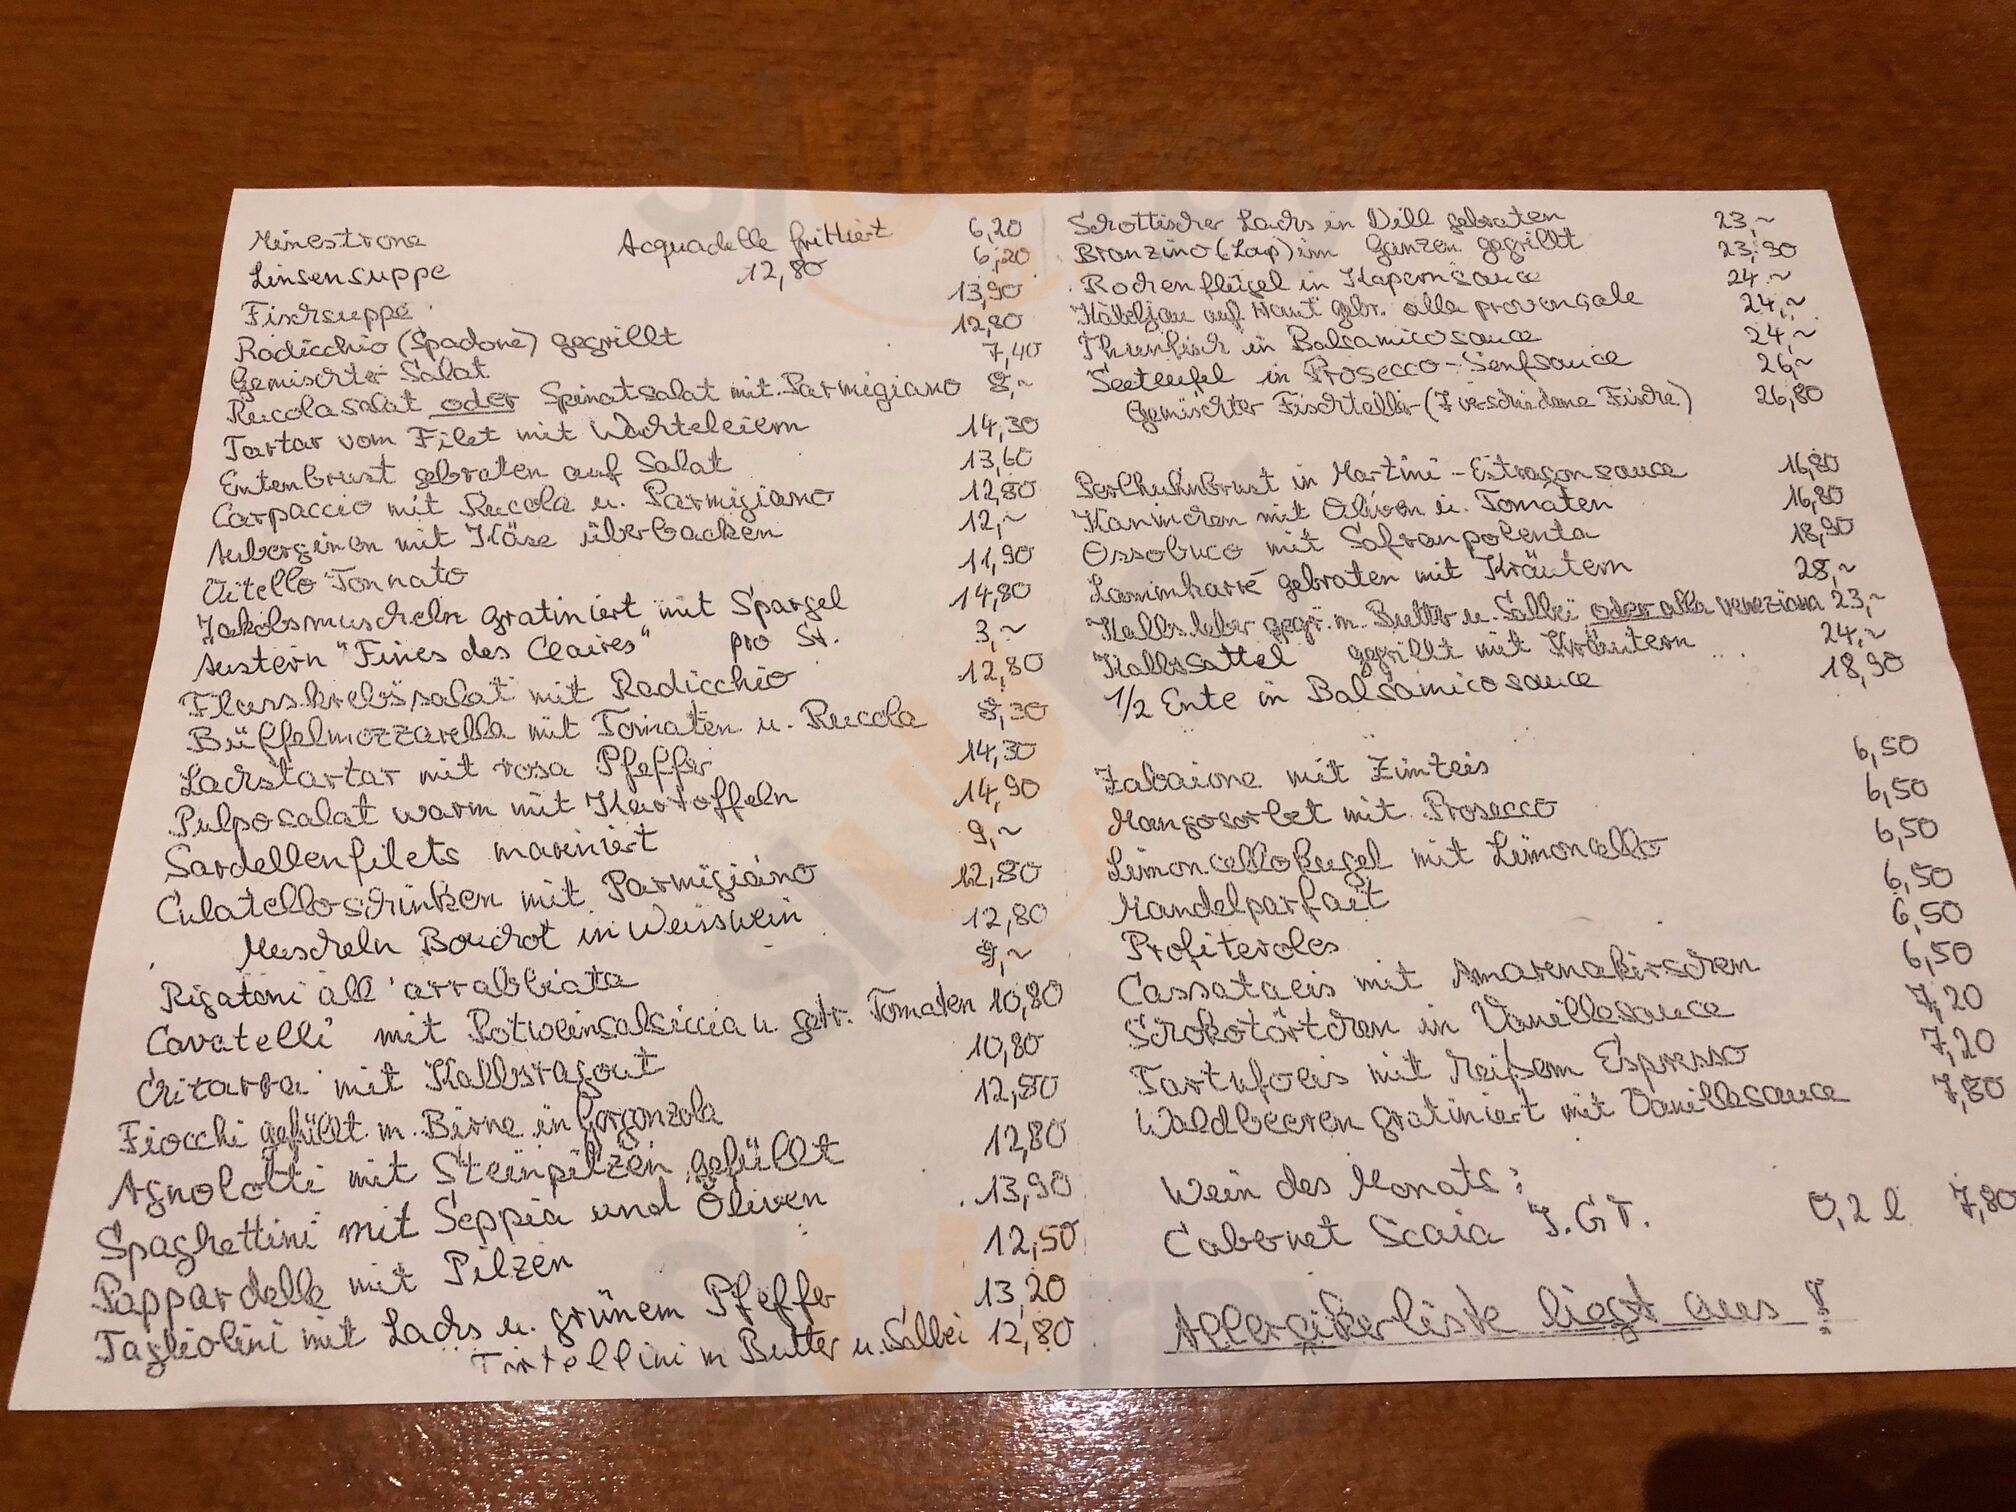 Minestrone 6,20
Acquadelle frittiert 12,80
Linsensuppe 6,20
Fischsuppe 13,90
Radicchio (Spadone) gegrillt 12,80
Gemischter Salat 7,40
Rucolasalat oder Spinatsalat mit Parmigiano 8,~
Tartar vom Filet mit Wachteleiern 14,30
Entenbrust gebraten auf Salat 13,60
Carpaccio mit Rucola u. Parmigiano 12,80
Auberginen mit Käse überbacken 12,~
Vitello Tonnato 11,90
Jakobsmuscheln gratiniert mit Spargel 14,80
Austern "Fines des Claires" pro St. 3,~
Flusskrebssalat mit Radicchio 12,80
Büffelmozzarella mit Tomaten u. Rucola 8,30
Lachstartar mit rosa Pfeffer 14,30
Pulposalat warm mit Kartoffeln 14,90
Sardellenfilets mariniert 9,~
Culatelloschinken mit Parmigiano 12,80
Muscheln Bouchot in Weisswein 12,80
Rigatoni all'arrabbiata 9,~
Cavatelli mit Rotweinsalsiccia u. getr. Tomaten 10,80
Chitarra mit Kalbsragout 10,80
Fiocchi gefüllt m. Birne in Gorgonzola 12,80
Agnolotti mit Steinpilzen gefüllt 12,80
Spaghettini mit Seppia und Oliven 13,90
Pappardelle mit Pilzen 12,50
Tagliolini mit Lachs u. grünem Pfeffer 13,20
Tortellini m Butter u. Salbei 12,80
Schottischer Lachs in Dill gebraten 23,~
Branzino (Lup) im Ganzen gegrillt 23,90
Rochenflügel in Kapernsauce 24,~
Kabeljau auf Haut gebr. alla provençale 24,~
Thunfisch in Balsamicosauce 24,~
Seeteufel in Prosecco-Senfsauce 26,~
Gemischter Fischteller (7 verschiedene Fische) 26,80
Perlhuhnbrust in Martini-Estragonsauce 16,80
Kaninchen mit Oliven u. Tomaten 16,80
Ossobuco mit Safranpolenta 18,90
Lammkarré gebraten mit Kräutern 28,~
Kalbsleber gegr. m. Butter u. Salbei oder alla veneziana 23,~
Kalbssattel gegrillt mit Kräutern 24,~
1/2 Ente in Balsamicosauce 18,90
Zabaione mit Zimteis 6,50
Mangosorbet mit Prosecco 6,50
Limoncellokugel mit Limoncello 6,50
Mandelparfait 6,50
Profiteroles 6,50
Cassataeis mit Amarenakirschen 6,50
Schokotörtchen in Vanillesauce 7,20
Tartufoeis mit heißem Espresso 7,20
Waldbeeren gratiniert mit Vanillesauce 7,80
Wein des Monats:
Cabernet Scaia I.G.T. 0,2 l 7,80
Allergikerliste liegt aus!